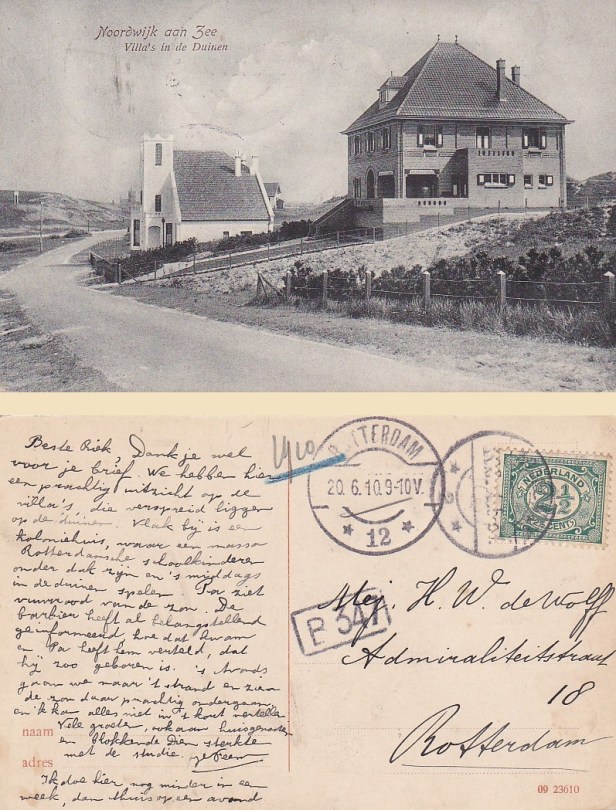 Noordwijk aan Zee
Villa's in de Duinen
Beste Riek, Dank je wel
voor je brief. We hebben hier
een prachtig uitzicht op de
villa's, die verspreid liggen
op de duinen. Vlak bij is een
koloniehuis, waar een massa
Rotterdamsche schoolkinderen
onder dak zijn en 's middags
in de duinen spelen. Pa ziet
vuurrood van de zon. De
barbier heeft al belangstellend
geïnformeerd, hoe dat kwam
en Pa heeft hem verteld, dat
hij zoo geboren is. 's Avonds
gaan we naar 't strand en zien
de zon daar prachtig ondergaan
en ik kan alles niet in 't kort vertellen
Vele groeten, ook aan huisgenooten
en blokkende Dien sterkte
met de studie. je Feem
naam
adres
Ik doe hier, nog minder in een
week, dan thuis op een avond
1910
ROTTERDAM
20.6.10.9-10V.
12
NEDERLAND
2½
CENT
P 347
Mej. H. W. de Wolff
Admiraliteitstraat
18
Rotterdam
09 23610